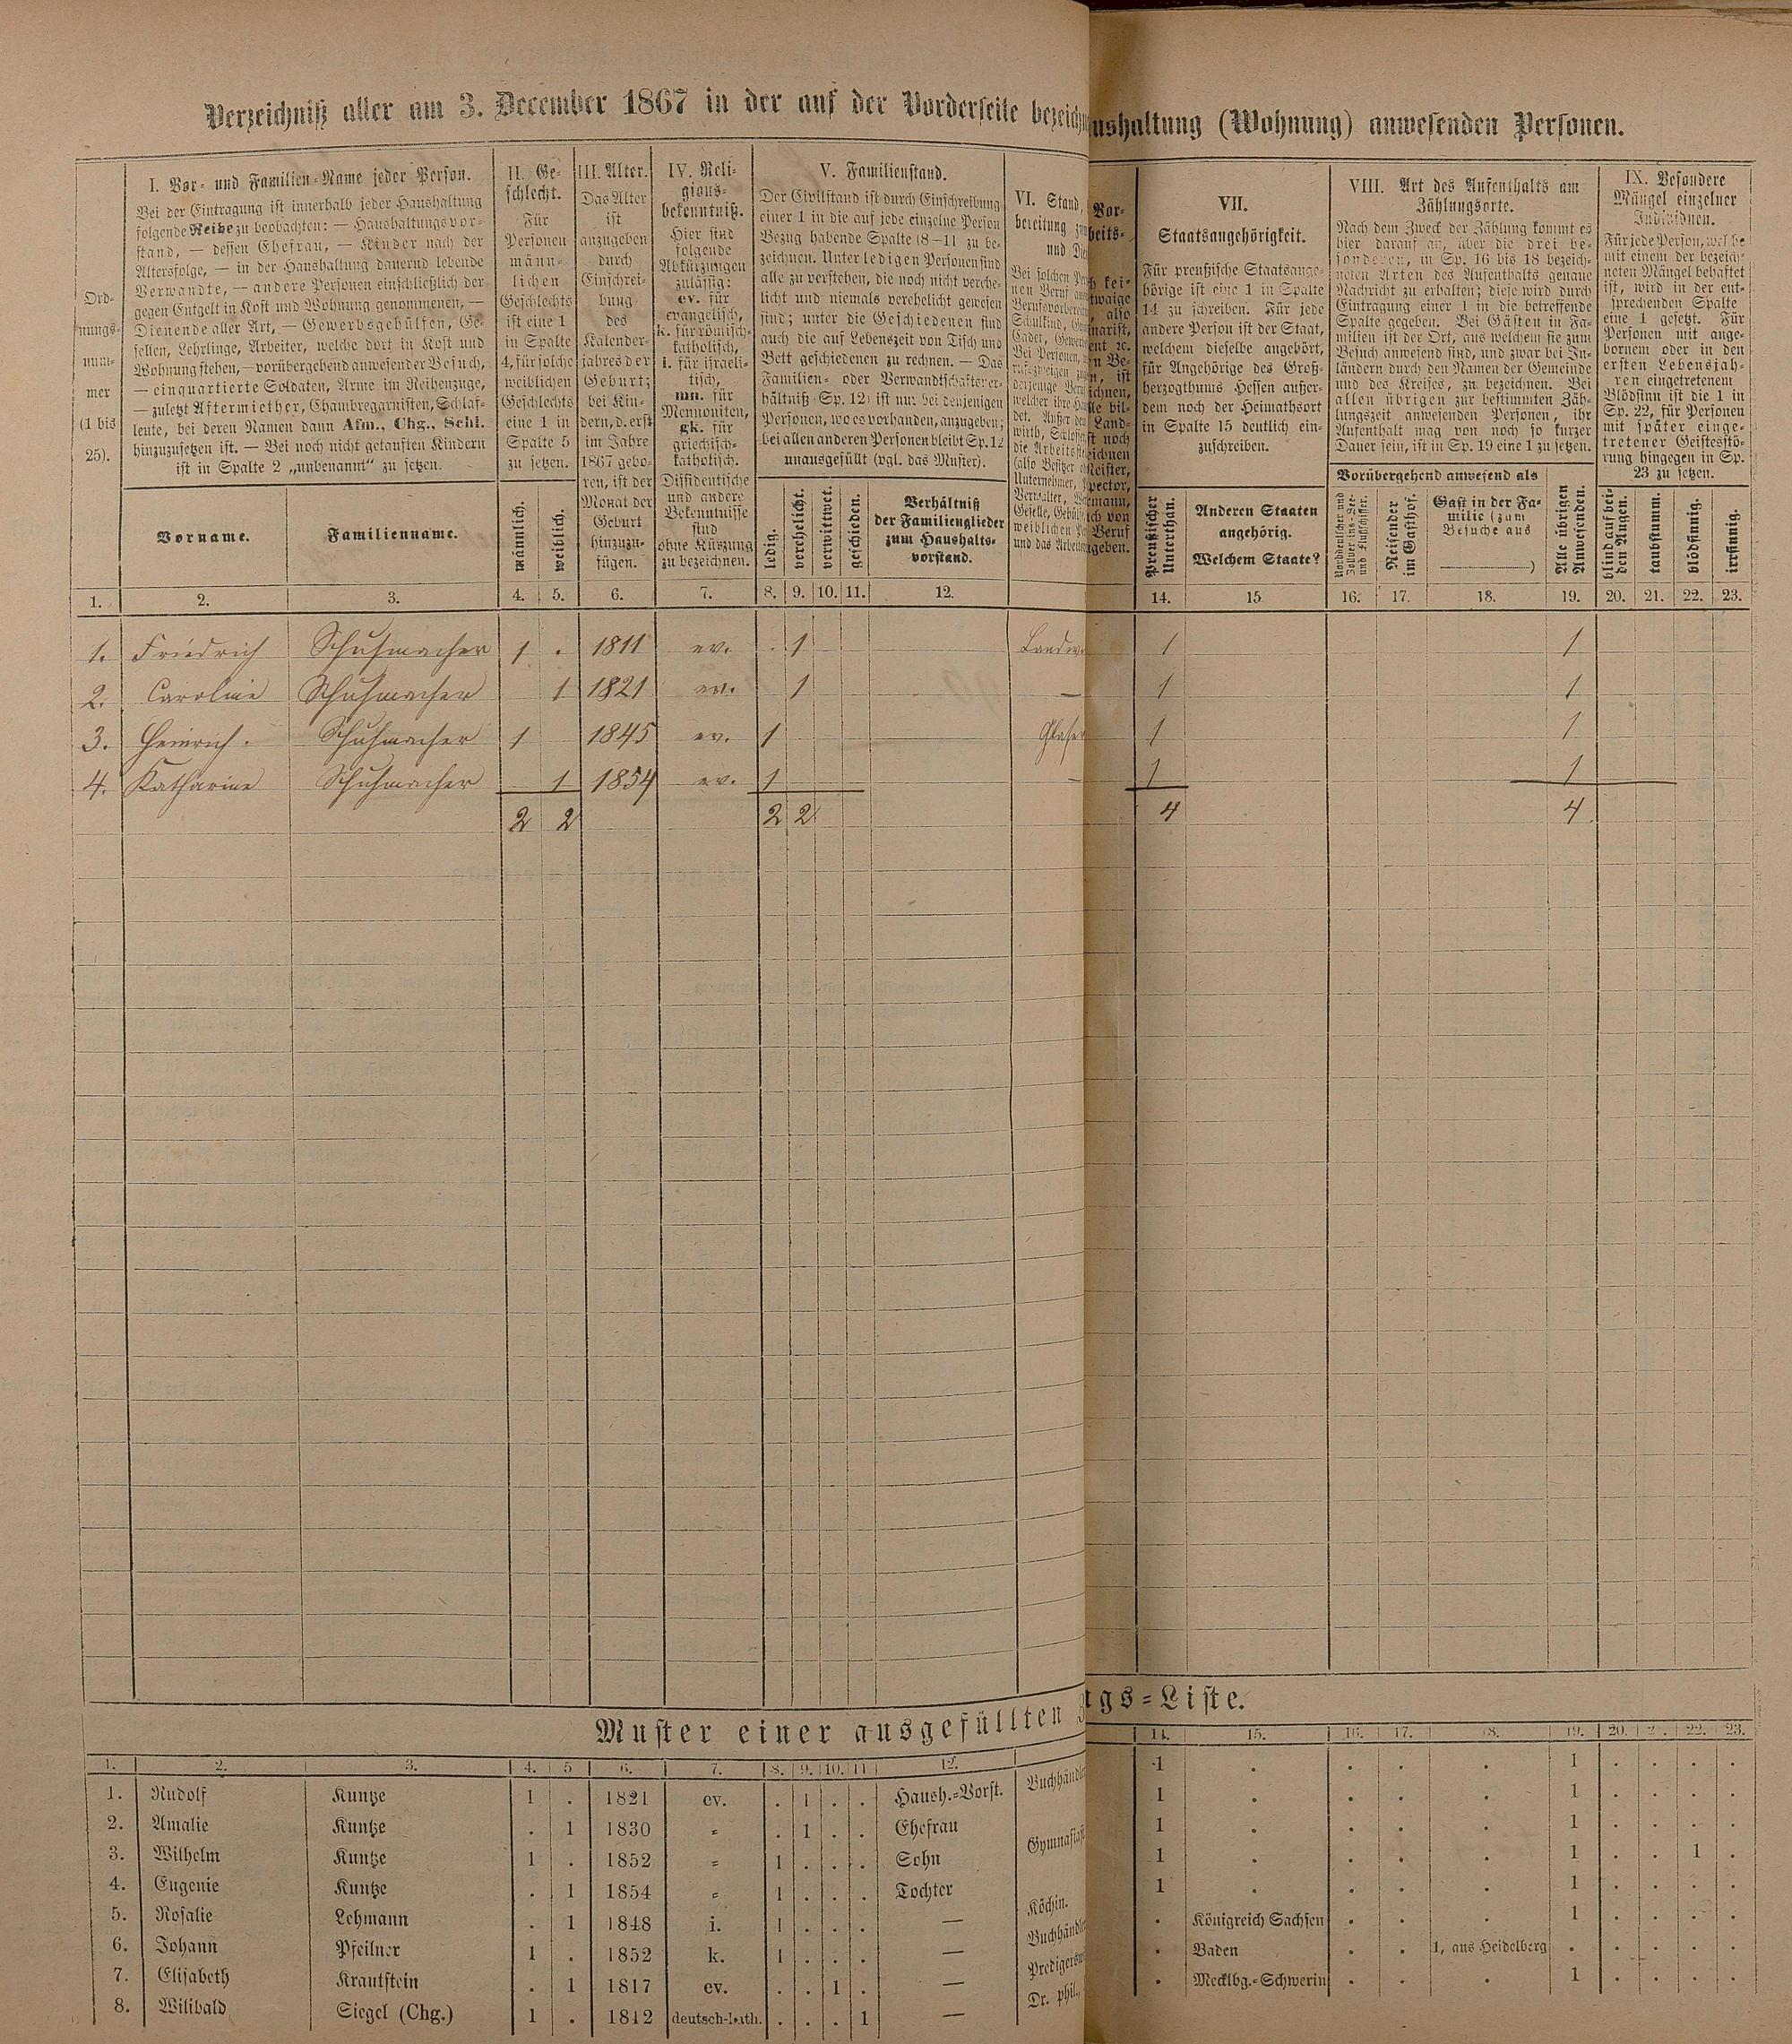 Verzeichniß aller am 3. December 1867 in der auf der Vorderseite bezeichn
ushaltung (Wohnung) anwesenden Personen.
Ord-
nungs-
num-
mer
(1 bis
25).
I. Vor- und Familien-Name jeder Person.
Bei der Eintragung ist innerhalb jeder Haushaltung
folgende Reihe zu beobachten: — Haushaltungsvor-
stand, — dessen Ehefrau, — Kinder nach der
Altersfolge, — in der Haushaltung dauernd lebende
Verwandte, — andere Personen einschließlich der
gegen Entgelt in Kost und Wohnung genommenen, —
Dienende aller Art, — Gewerbsgehülfen, Ge-
sellen, Lehrlinge, Arbeiter, welche dort in Kost und
Wohnung stehen, — vorübergehend anwesender Besuch,
— einquartierte Soldaten, Arme im Reihenzuge,
— zuletzt Aftermiether, Chambregarnisten, Schlaf-
leute, bei deren Namen dann Afm., Chg., Schl.
hinzuzusetzen ist. — Bei noch nicht getauften Kindern
ist in Spalte 2 „unbenannt“ zu setzen.
Vorname.
Familienname.
II. Ge-
schlecht.
Für
Personen
männ-
lichen
Geschlechts
ist eine 1
in Spalte
4, für solche
weiblichen
Geschlechts
eine 1 in
Spalte 5
zu setzen.
männlich.
weiblich.
III. Alter.
Das Alter
ist
anzugeben
durch
Einschrei-
bung
des
Kalender-
jahres der
Geburt;
bei Kin-
dern, d. erst
im Jahre
1867 gebo-
ren, ist der
Monat der
Geburt
hinzuzu-
fügen.
IV. Reli-
gions-
bekenntniß.
Hier sind
folgende
Abkürzungen
zulässig:
ev. für
evangelisch,
k. für römisch-
katholisch,
i. für israeli-
tisch,
mn. für
Mennoniten,
gk. für
griechisch-
katholisch.
Dissidentische
und andere
Bekenntnisse
sind
ohne Kürzung
zu bezeichnen.
V. Familienstand.
Der Civilstand ist durch Einschreibung
einer 1 in die auf jede einzelne Person
Bezug habende Spalte (8—11) zu be-
zeichnen. Unter ledigen Personen sind
alle zu verstehen, die noch nicht verehe-
licht und niemals verehelicht gewesen
sind; unter die Geschiedenen sind
auch die auf Lebenszeit von Tisch und
Bett geschiedenen zu rechnen. — Das
Familien- oder Verwandtschaftsver-
hältniß (Sp. 12) ist nur bei denjenigen
Personen, wo es vorhanden, anzugeben;
bei allen anderen Personen bleibt Sp. 12
unausgefüllt (vgl. das Muster).
ledig.
verehelicht.
verwittwet.
geschieden.
Verhältniß
der Familienglieder
zum Haushalts-
vorstand.
VI. Stand,
bereitung zum
und Die
Vor-
beits-
VII.
Staatsangehörigkeit.
Für preußische Staatsange-
hörige ist eine 1 in Spalte
14 zu schreiben. Für jede
andere Person ist der Staat,
welchem dieselbe angehört,
für Angehörige des Groß-
herzogthums Hessen außer-
dem noch der Heimathsort
in Spalte 15 deutlich ein-
zuschreiben.
Preußischer
Unterthan.
Anderen Staaten
angehörig.
Welchem Staate?
VIII. Art des Aufenthalts am
Zählungsorte.
Nach dem Zweck der Zählung kommt es
hier darauf an, über die drei be-
sonderen, in Sp. 16 bis 18 bezeich-
neten Arten des Aufenthalts genaue
Nachricht zu erhalten; diese wird durch
Eintragung einer 1 in die betreffende
Spalte gegeben. Bei Gästen in Fa-
milien ist der Ort, aus welchem sie zum
Besuch anwesend sind, und zwar bei In-
ländern durch den Namen der Gemeinde
und des Kreises, zu bezeichnen. Bei
allen übrigen zur bestimmten Zäh-
lungszeit anwesenden Personen, ihr
Aufenthalt mag von noch so kurzer
Dauer sein, ist in Sp. 19 eine 1 zu setzen.
Vorübergehend anwesend als
Norddeutscher und
Zollvereins-See-
und Flußschiffer.
Reisender
im Gasthof.
Gast in der Fa-
milie (zum
Besuche aus
)
Alle übrigen
Anwesenden.
IX. Besondere
Mängel einzelner
Individuen.
Für jede Person, welche
mit einem der bezeich-
neten Mängel behaftet
ist, wird in der ent-
sprechenden Spalte
eine 1 gesetzt. Für
Personen mit ange-
bornem oder in den
ersten Lebensjah-
ren eingetretenem
Blödsinn ist die 1 in
Sp. 22, für Personen
mit später einge-
tretener Geistesstö-
rung hingegen in Sp.
23 zu setzen.
blind auf bei-
den Augen.
taubstumm.
blödsinnig.
irrsinnig.
1. 2. 3. 4. 5. 6. 7. 8. 9. 10. 11. 12. 14. 15 16. 17. 18. 19. 20. 21. 22. 23.
1. Friedrich Schuhmacher 1 . 1811 ev. . 1 Landw. 1 1
2. Caroline Schuhmacher 1 1821 ev. 1 — 1 1
3. Heinrich. Schuhmacher 1 1845 ev. 1 Glaser 1 1
4. Katharine Schuhmacher 1 1854 ev. 1 — 1 1
2 2 2 2 4 4
Muster einer ausgefüllten
ngs-Liste.
1. 2. 3. 4. 5 6. 7. 8. 9. 10. 11 12. 14. 15. 16. 17. 18. 19. 20. 2. 22. 23.
1. Rudolf Kuntze 1 . 1821 ev. . 1 . . Haush.-Vorst. Buchhändle 1 . . . . 1 . . . .
2. Amalie Kuntze . 1 1830 „ . 1 . . Ehefrau 1 . . . . 1 . . . .
3. Wilhelm Kuntze 1 . 1852 „ 1 . . . Sohn Gymnasiast 1 . . . . 1 . . . .
4. Eugenie Kuntze . 1 1854 „ 1 . . . Tochter 1 . . . . 1 . . 1 .
5. Rosalie Lehmann . 1 1848 i. 1 . . . — Köchin. 1 . . . . 1 . . . .
6. Johann Pfeilner 1 . 1852 k. 1 . . . — Buchhändle . Königreich Sachsen . . . 1 . . . .
7. Elisabeth Krautstein . 1 1817 ev. . . 1 . — Predigersw . Baden . . 1, aus Heidelberg . . . . .
8. Wilibald Siegel (Chg.) 1 . 1842 deutsch-kath. . . . 1 — Dr. phil., . Mecklbg.-Schwerin . . . 1 . . . .